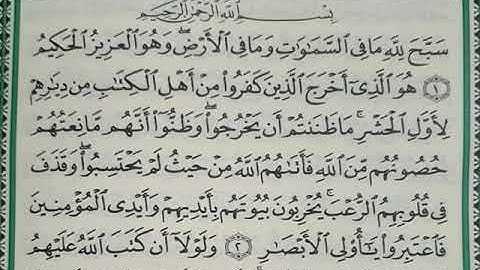 بِسْمِ ٱللَّهِ ٱلرَّحْمَٰنِ ٱلرَّحِيمِ
سَبَّحَ لِلَّهِ مَا فِى ٱلسَّمَٰوَٰتِ وَمَا فِى ٱلْأَرْضِ ۖ وَهُوَ ٱلْعَزِيزُ ٱلْحَكِيمُ
١ هُوَ ٱلَّذِىٓ أَخْرَجَ ٱلَّذِينَ كَفَرُوا۟ مِنْ أَهْلِ ٱلْكِتَٰبِ مِن دِيَٰرِهِمْ
لِأَوَّلِ ٱلْحَشْرِ ۚ مَا ظَنَنتُمْ أَن يَخْرُجُوا۟ ۖ وَظَنُّوٓا۟ أَنَّهُم مَّانِعَتُهُمْ
حُصُونُهُم مِّنَ ٱللَّهِ فَأَتَىٰهُمُ ٱللَّهُ مِنْ حَيْثُ لَمْ يَحْتَسِبُوا۟ ۖ وَقَذَفَ
فِى قُلُوبِهِمُ ٱلرُّعْبَ ۚ يُخْرِبُونَ بُيُوتَهُم بِأَيْدِيهِمْ وَأَيْدِى ٱلْمُؤْمِنِينَ
فَٱعْتَبِرُوا۟ يَٰٓأُو۟لِى ٱلْأَبْصَٰرِ ٢ وَلَوْلَآ أَن كَتَبَ ٱللَّهُ عَلَيْهِمُ